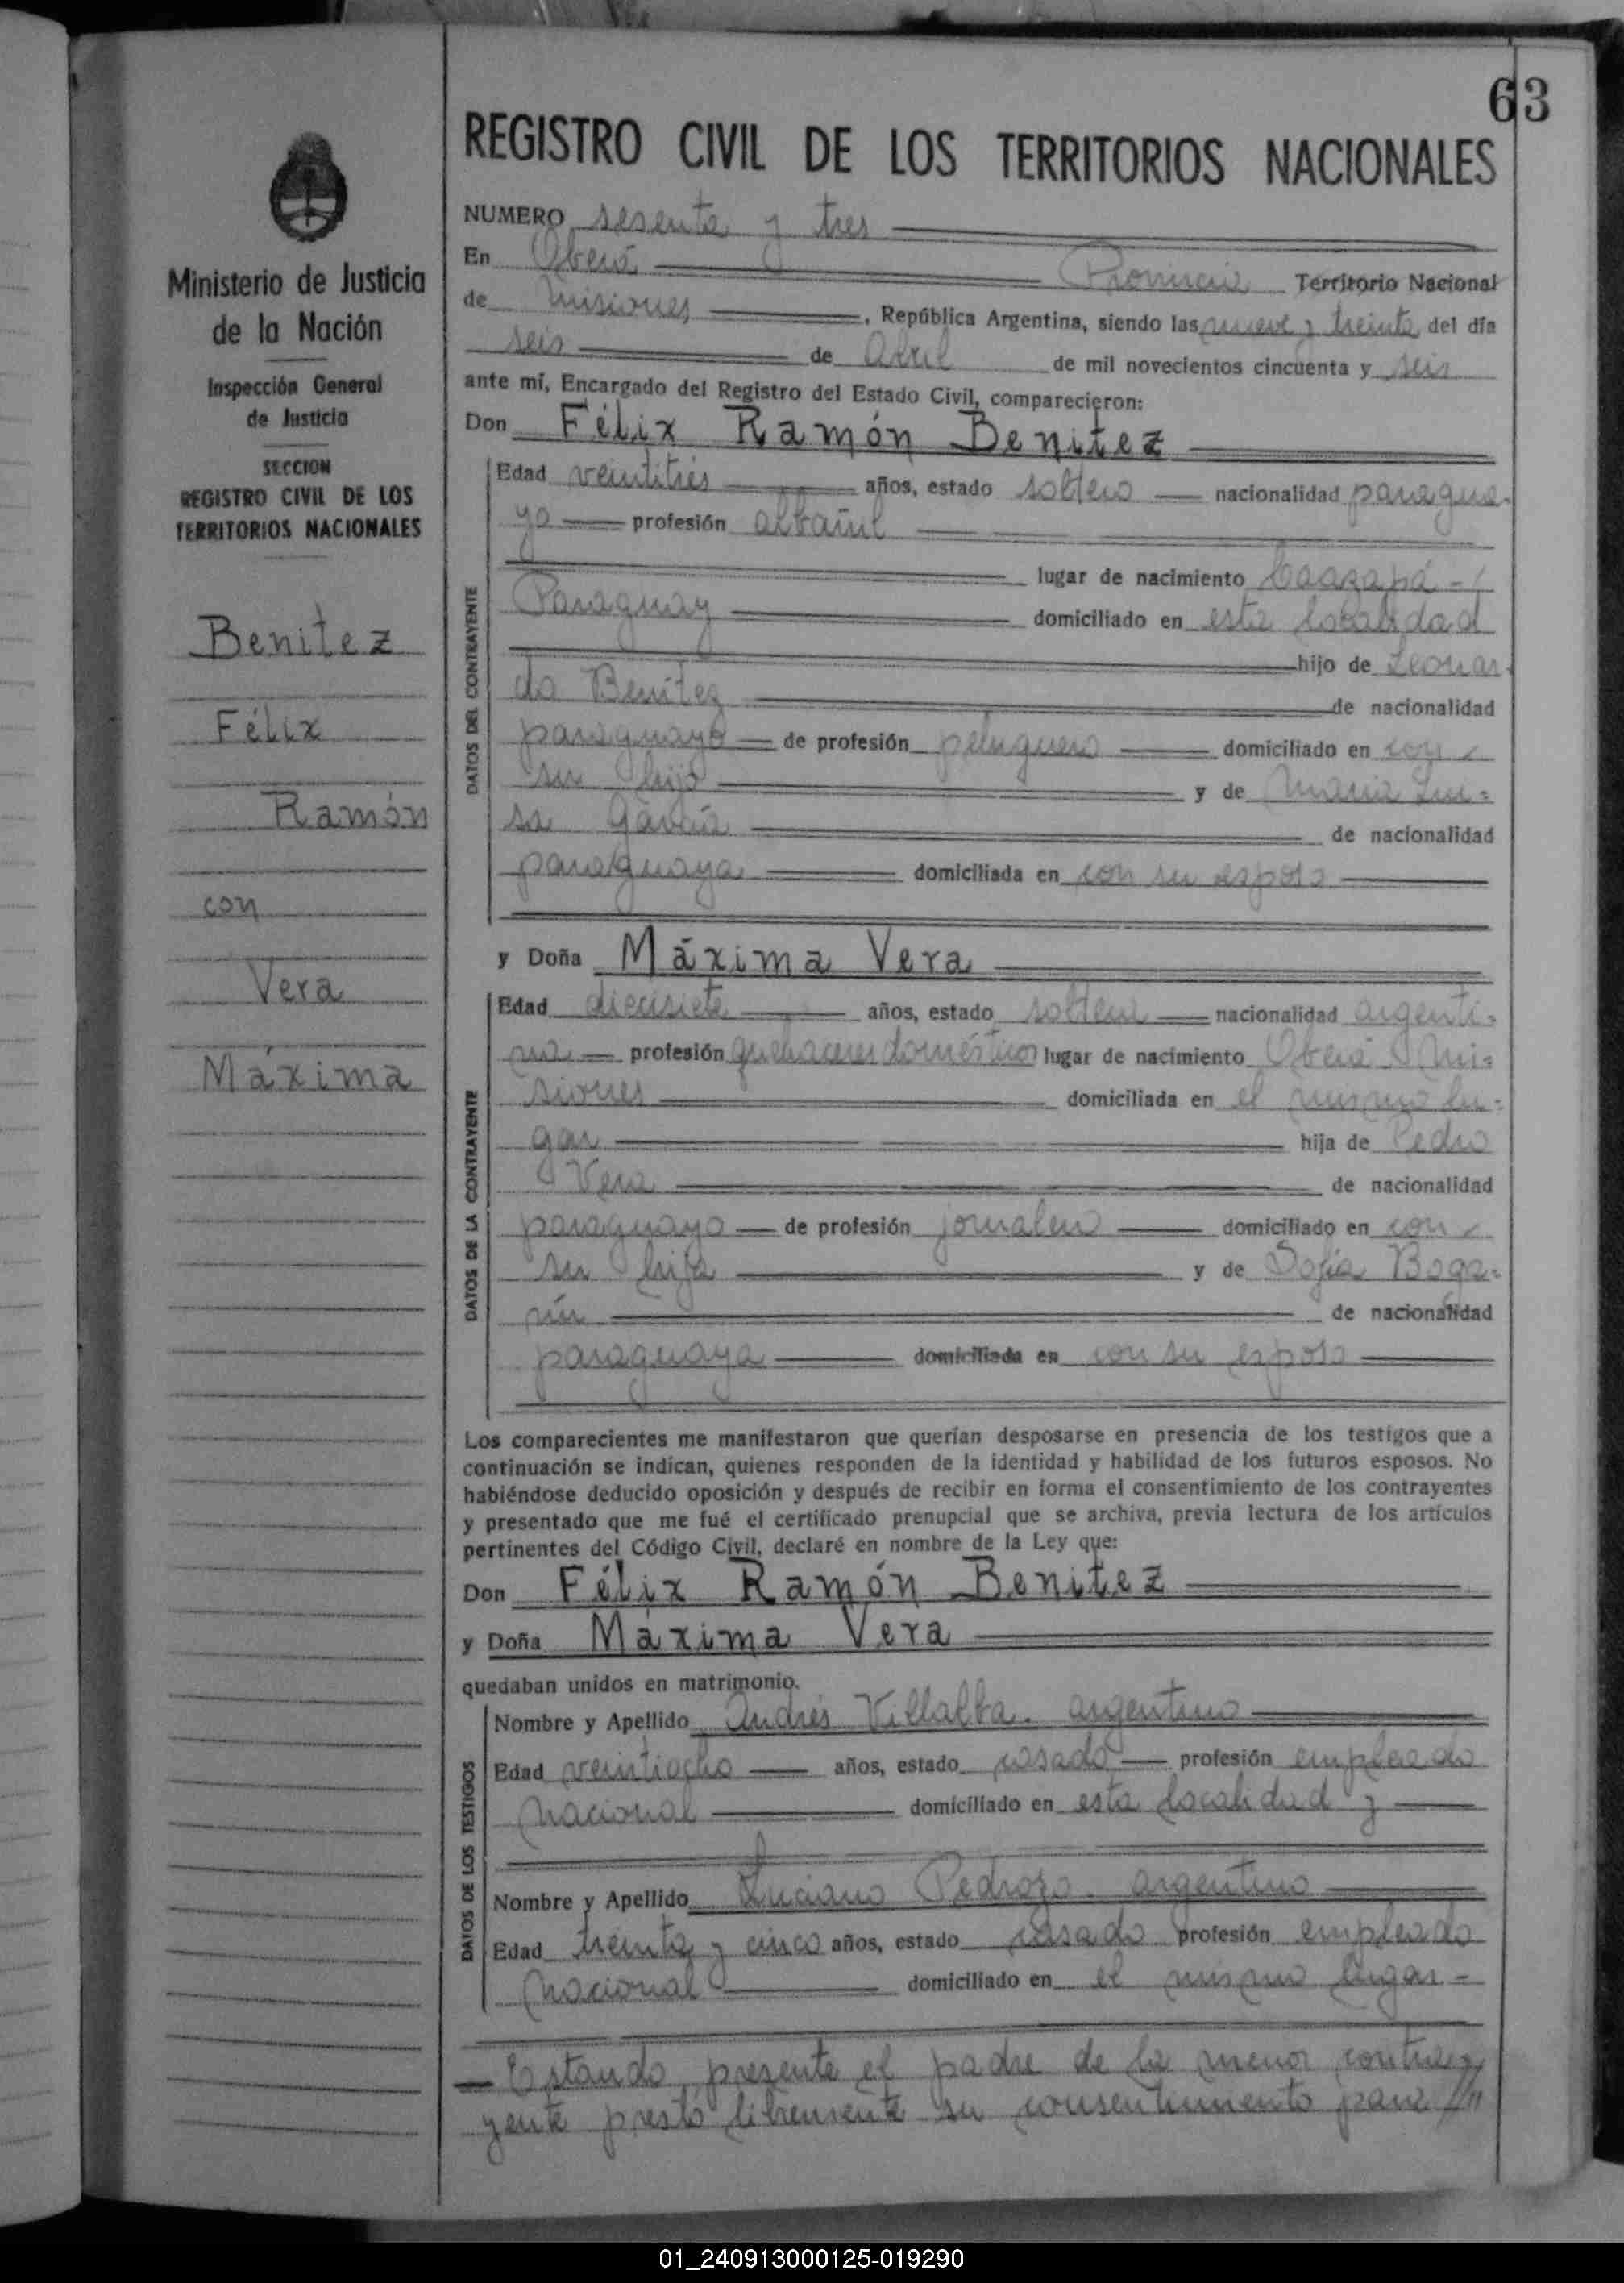 63
REGISTRO CIVIL DE LOS TERRITORIOS NACIONALES
Ministerio de Justicia
de la Nación
Inspección General
de Justicia
SECCION
REGISTRO CIVIL DE LOS
TERRITORIOS NACIONALES
Benitez
Félix
Ramón
con
Vera
Máxima
NUMERO sesenta y tres
En Oberá Provincia Territorio Nacional
de Misiones, República Argentina, siendo las nueve y treinta del día
seis de Abril de mil novecientos cincuenta y seis
ante mí, Encargado del Registro del Estado Civil, comparecieron:
Don Félix Ramón Benitez
DATOS DEL CONTRAYENTE
Edad veintitrés años, estado soltero nacionalidad paragua-
yo profesión albañil
lugar de nacimiento Caazapá -
Paraguay domiciliado en esta localidad
hijo de Leonar-
do Benítez de nacionalidad
paraguayo de profesión peluquero domiciliado en con
su hijo y de María Lui-
sa de nacionalidad
paraguaya domiciliada en con su esposo
y Doña Máxima Vera
DATOS DE LA CONTRAYENTE
Edad diecisiete años, estado soltera nacionalidad argenti-
na profesión quehaceres domésticos lugar de nacimiento Oberá Mi-
siones domiciliada en el mismo lu-
gar hija de Pedro
Vera de nacionalidad
paraguayo de profesión jornalero domiciliado en con
su hija y de Sofía Boga-
rín de nacionalidad
paraguaya domiciliada en con su esposo
Los comparecientes me manifestaron que querían desposarse en presencia de los testigos que a
continuación se indican, quienes responden de la identidad y habilidad de los futuros esposos. No
habiéndose deducido oposición y después de recibir en forma el consentimiento de los contrayentes
y presentado que me fué el certificado prenupcial que se archiva, previa lectura de los artículos
pertinentes del Código Civil, declaré en nombre de la Ley que:
Don Félix Ramón Benitez
y Doña Máxima Vera
quedaban unidos en matrimonio.
DATOS DE LOS TESTIGOS
Nombre y Apellido Andrés Villalba. argentino
Edad veintiocho años, estado casado profesión empleado
nacional domiciliado en esta localidad y
Nombre y Apellido Luciano Pedrozo. argentino
Edad treinta y cinco años, estado casado profesión empleado
nacional domiciliado en el mismo lugar. -
Estando presente el padre de la menor contra-
yente prestó libremente su consentimiento para ///
01_240913000125-019290